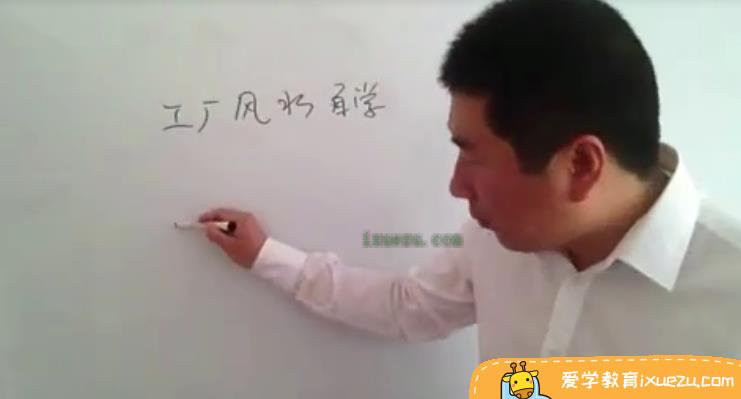 工厂风水自学
ixuezu.com
爱学教育ixuezu.com